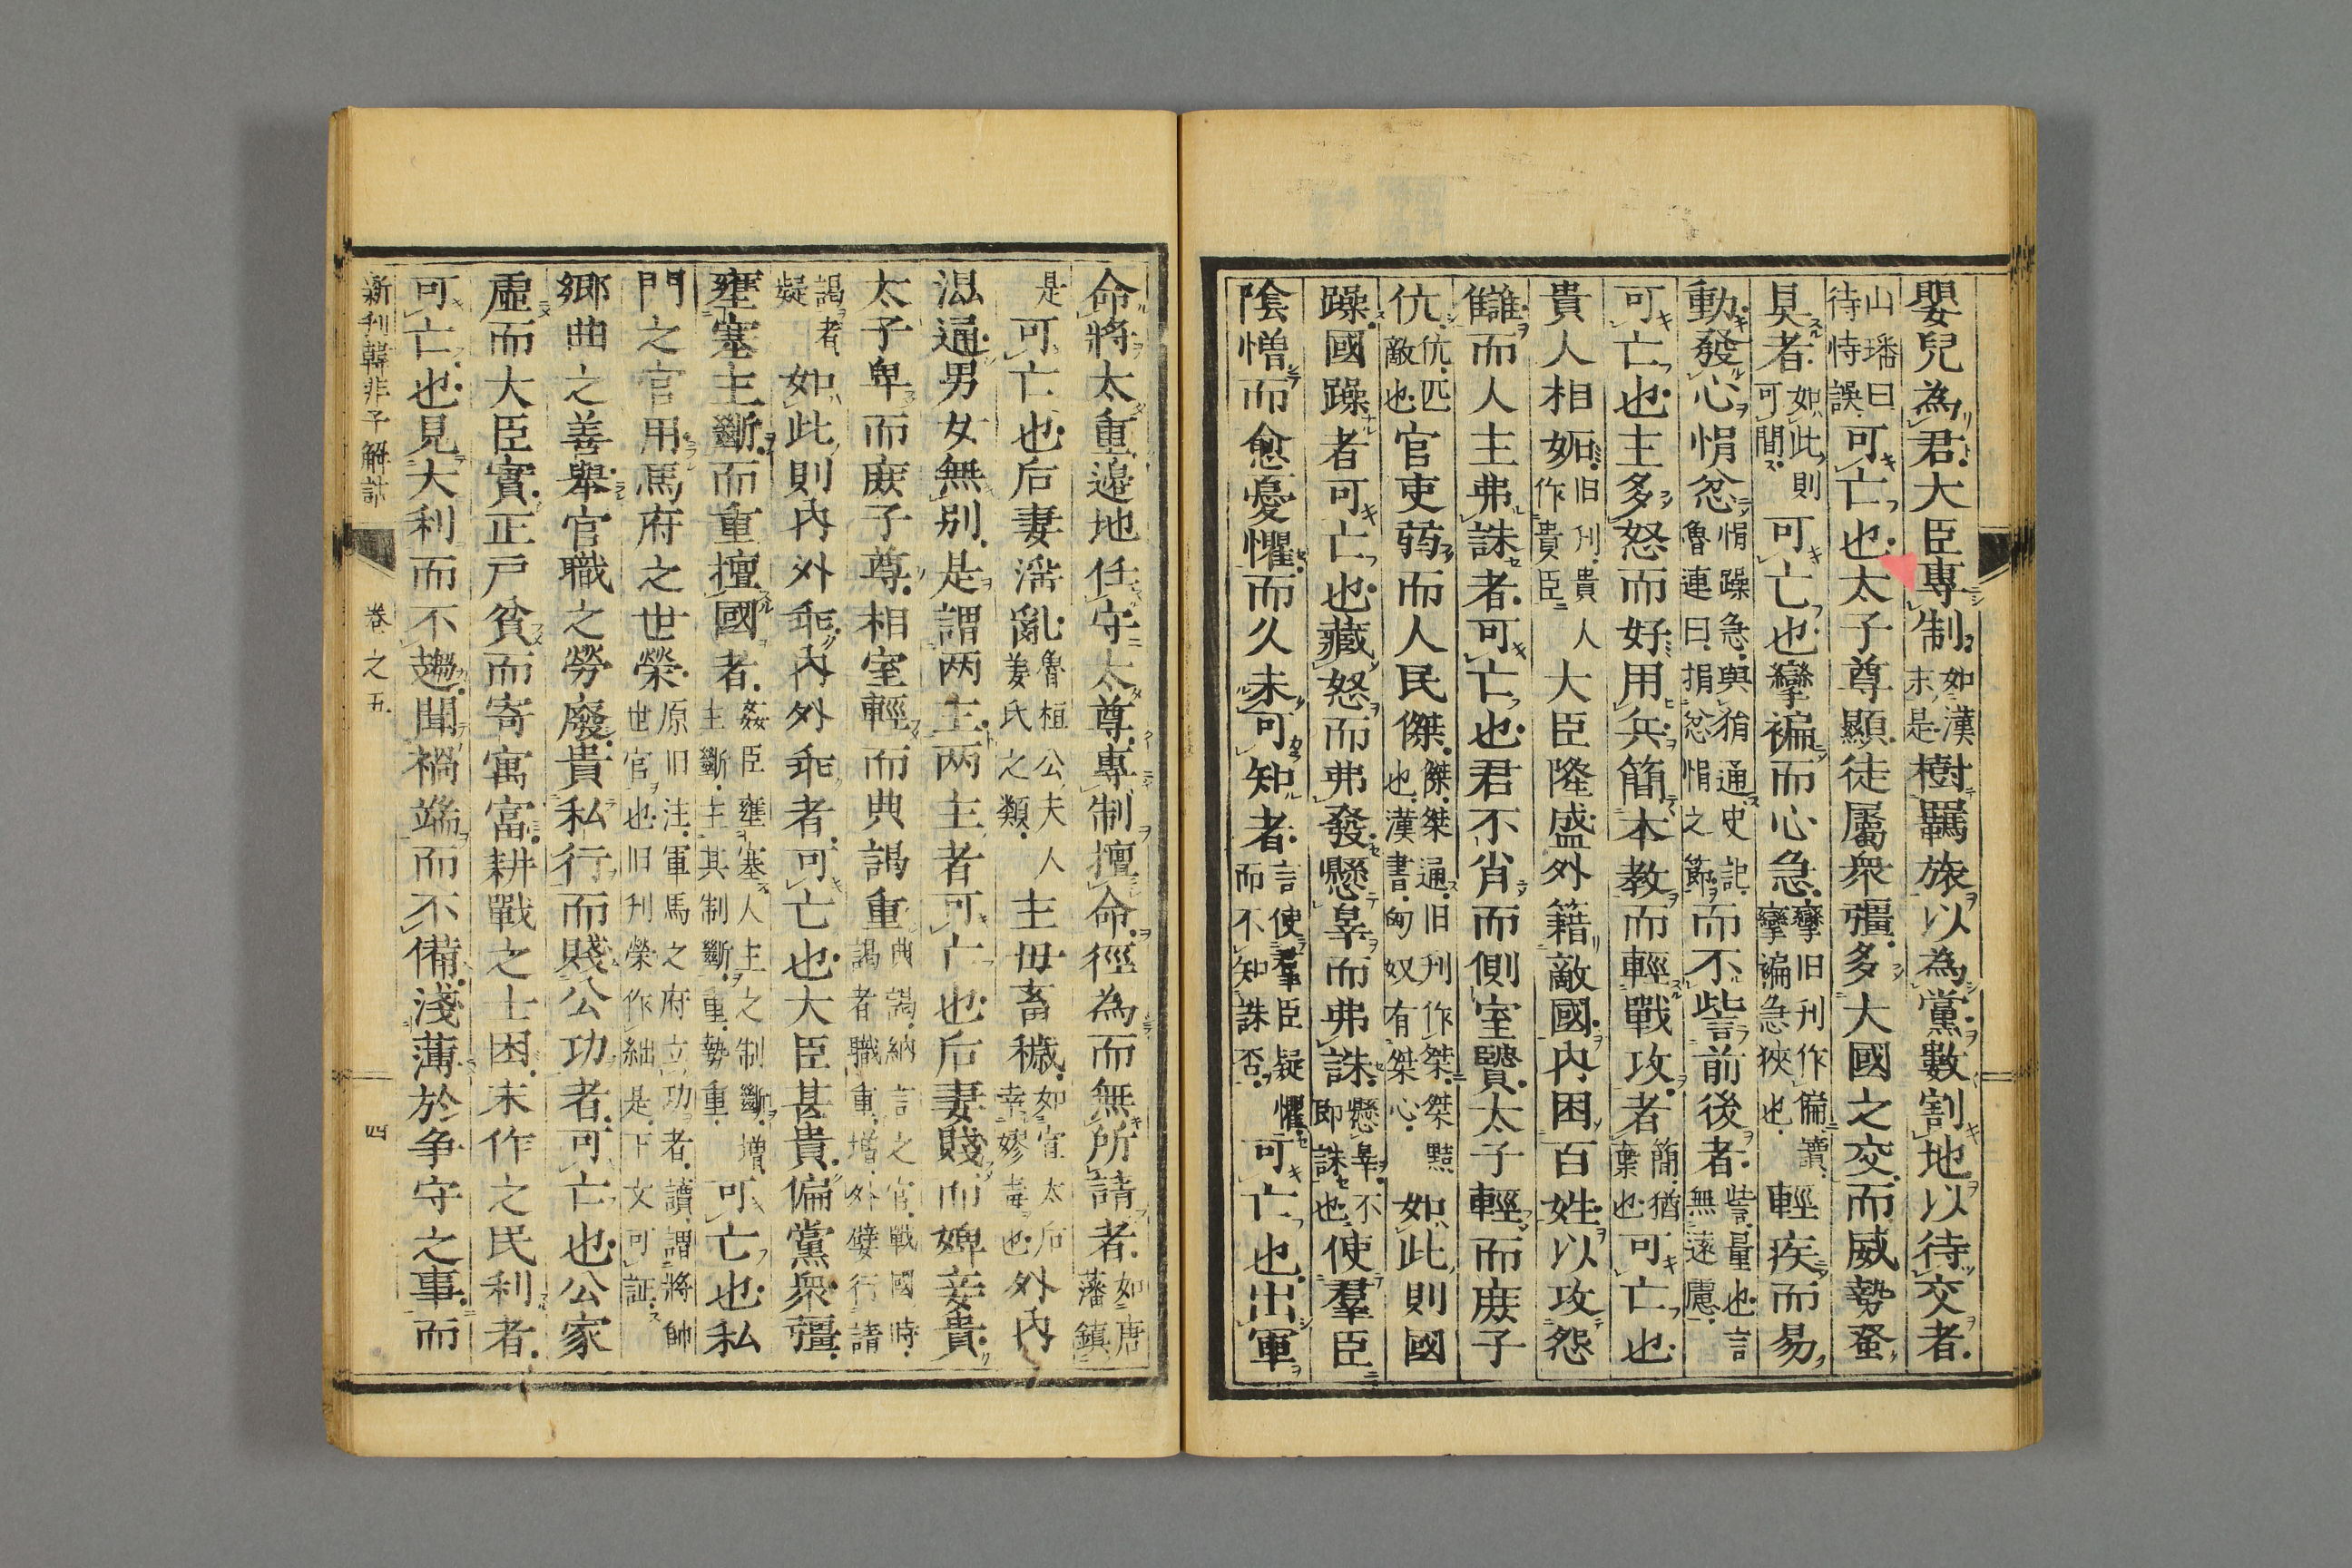 嬰兒為君大臣專制如漢末是樹羈旅以為黨數割地以待交者
山璠曰待恃誤可亡也太子尊顯徒屬衆彊多大國之交而威勢蚤
具者如此則可間可亡也攣褊而心急攣旧刊作偏讀攣褊急狹也輕疾而易
動發心悁忿悁躁急與狷通史記魯連曰捐忿悁之節而不訾前後者訾量也言無遠慮
可亡也主多怒而好用兵簡本教而輕戰攻者簡猶棄也可亡也
貴人相妬旧刊貴人作貴臣大臣隆盛外籍敵國內困百姓以攻怨
讎而人主弗誅者可亡也君不肖而側室賢太子輕而庻子
伉伉匹敵也官吏弱而人民傑傑桀通旧刊作桀桀黠也漢書匈奴有桀心如此則國
躁國躁者可亡也藏怒而弗發懸辠而弗誅懸辠不即誅也使羣臣
陰憎而愈憂懼而久未可知者言使羣臣疑懼而不知誅否可亡也出軍
命將太重邉地任守太尊專制擅命徑為而無所請者如唐藩鎮
是可亡也后妻淫亂魯桓公夫人姜氏之類主毋畜穢如宣太后幸嫪毒也外內
混通男女無別是謂两主两主者可亡也后妻賤而婢妾貴
太子卑而庻子尊相室輕而典謁重典謁納言之官戰國時謁者職重增外嬖行請
謁者疑如此則內外乖內外乖者可亡也大臣甚貴偏黨衆彊
壅塞主斷而重擅國者姦臣壅塞人主之制斷增主斷主其制斷重勢重可亡也私
門之官用馬府之世榮原旧注軍馬之府立功者讀謂將帥世官也旧刊榮作絀是下文可証
鄉曲之善舉官職之勞廢貴私行而賤公功者可亡也公家
虛而大臣實正戸貧而寄寓富耕戰之士困末作之民利者
可亡也見大利而不趨聞禍端而不備淺薄於争守之事而
新刊韓非子解詁 卷之五 四